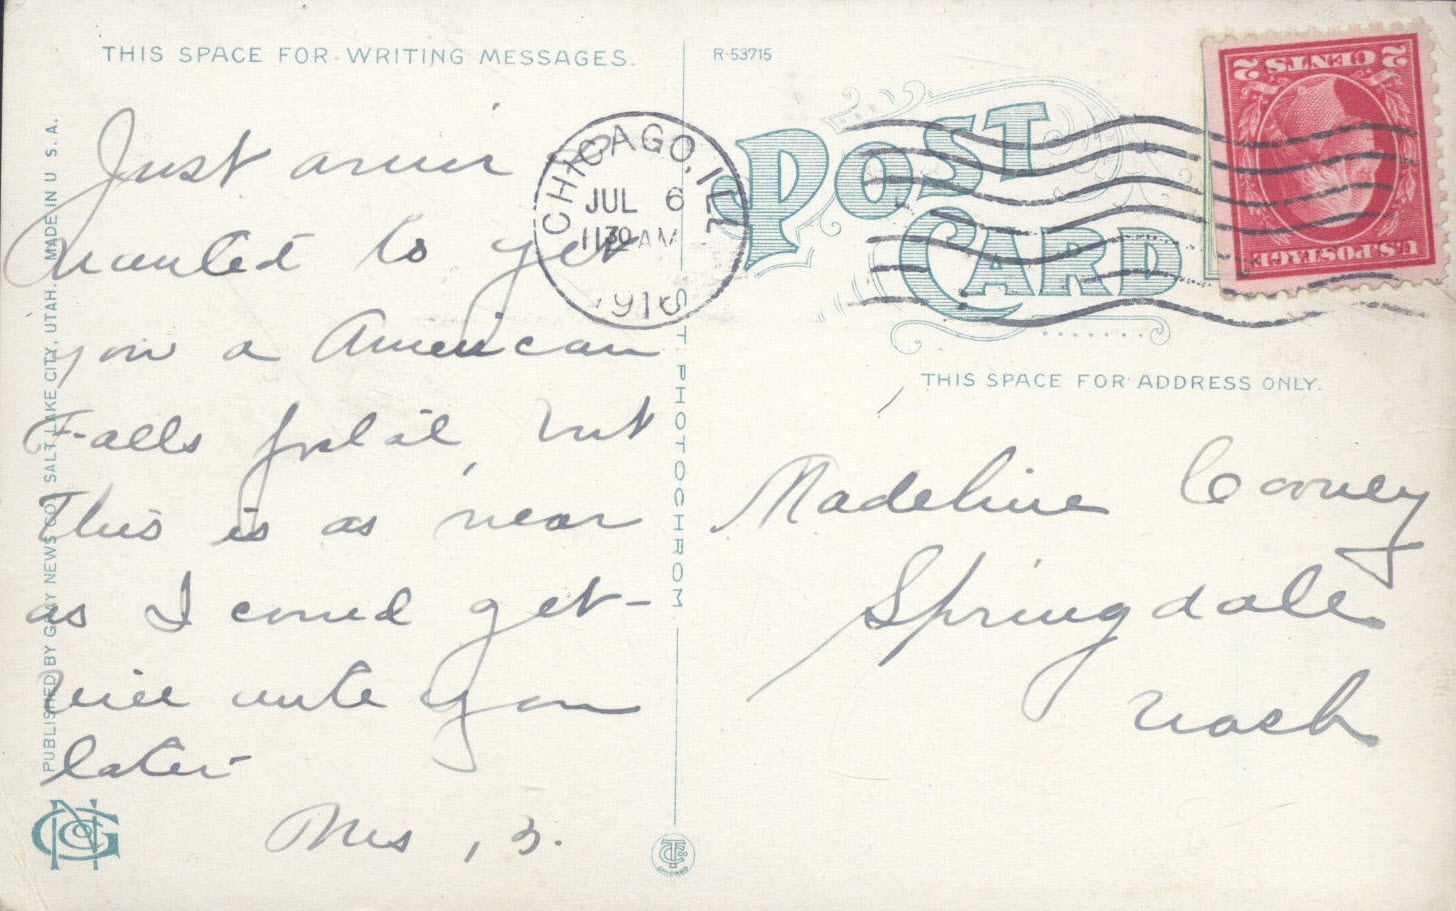 THIS SPACE FOR WRITING MESSAGES.
Just arriv
wanted to get
you a American
Falls postal, but
This is as near
as I coued get-
will write you
later
Mrs, B.
PUBLISHED BY GRAY NEWS CO. SALT LAKE CITY, UTAH. MADE IN U S. A.
C.T. PHOTOCHROM
R-53715
POST
CARD
CHICAGO, ILL
JUL 6
1130 AM
1916
2 CENTS 2
U.S. POSTAGE
THIS SPACE FOR ADDRESS ONLY.
Madeline Cooney
Springdale
Wash
CHICAGO